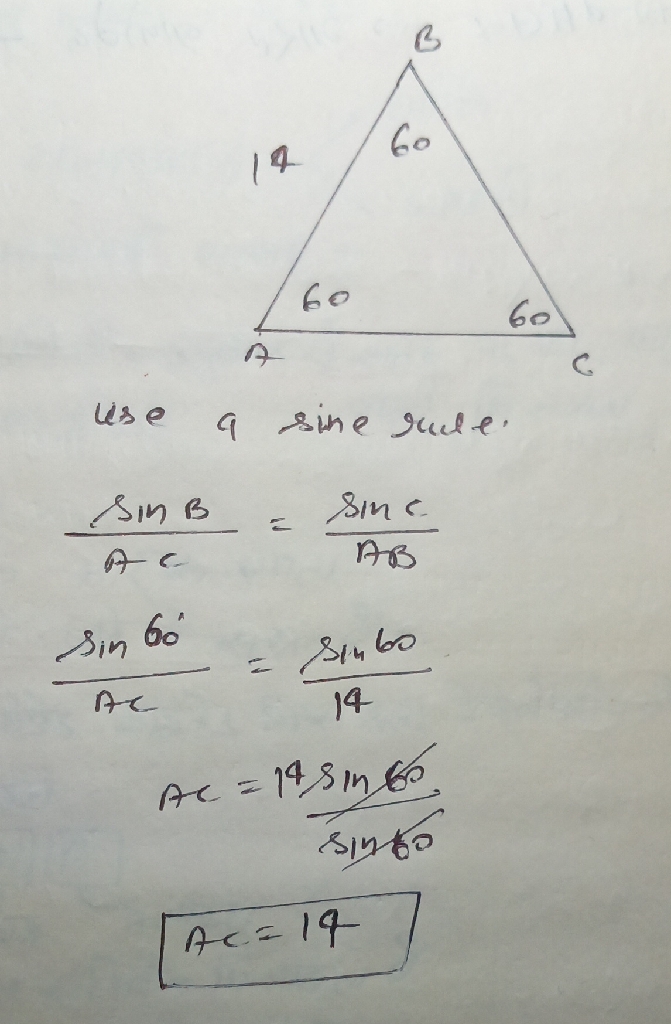 B
14
60
60
60
A
C
use a sine rule.
sin B / AC = sin C / AB
sin 60° / AC = sin 60 / 14
AC = 14 sin 60 / sin 60
AC = 14